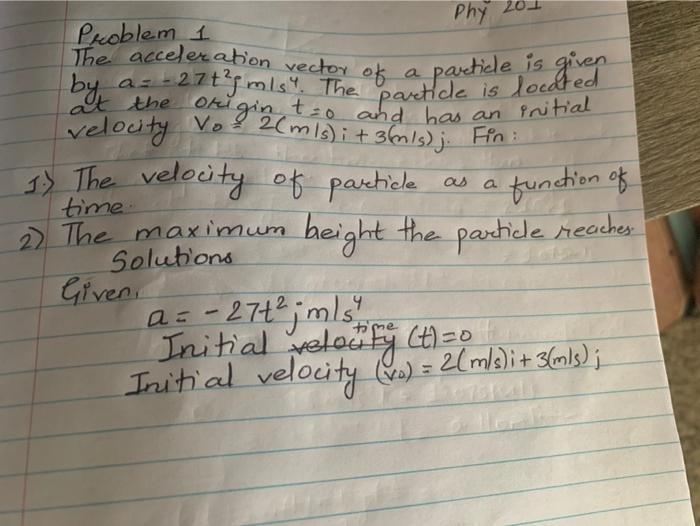 Phy 201
Problem 1
The acceleration vector of a particle is given
by a = -27t²j m/s⁴. The particle is located
at the origin t=0 and has an initial
velocity V₀ = 2(m/s)i + 3(m/s)j. Fin :
1) The velocity of particle as a function of
time.
2) The maximum height the particle reaches.
Solutions
Given,
a = -27t² j m/s⁴
time
Initial velocity (t) = 0
Initial velocity (v₀) = 2(m/s)i + 3(m/s)j